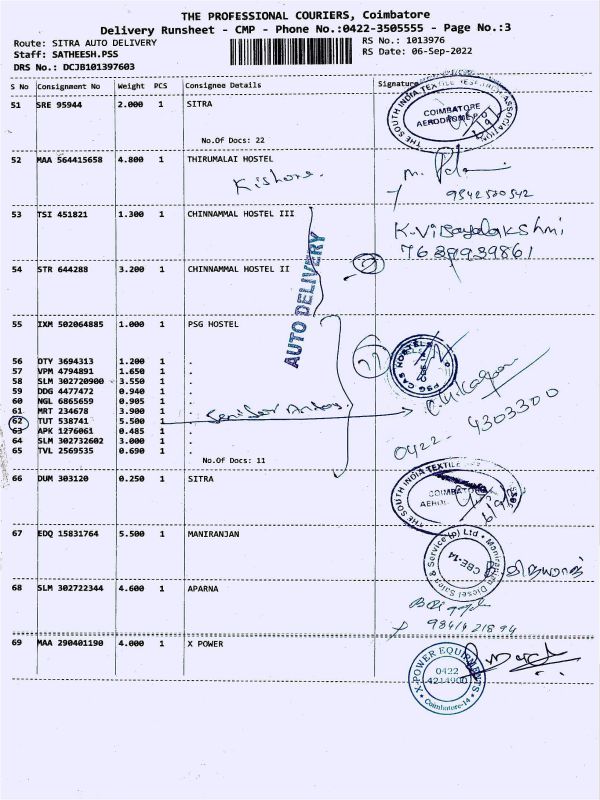 THE PROFESSIONAL COURIERS, Coimbatore
Delivery Runsheet - CMP - Phone No.:0422-3505555 - Page No.:3
Route: SITRA AUTO DELIVERY
Staff: SATHEESH.PSS
DRS No.: DCJB101397603
RS No.: 1013976
RS Date: 06-Sep-2022
S No Consignment No Weight PCS Consignee Details Signature
51 SRE 95944 2.000 1 SITRA
No.Of Docs: 22
THE SOUTH INDIA TEXTILE RESEARCH ASSOCIATION
COIMBATORE
AERODROME P.O
52 MAA 564415658 4.800 1 THIRUMALAI HOSTEL
Kishore.
53 TSI 451821 1.300 1 CHINNAMMAL HOSTEL III
K.Vijayalakshmi
7639939861
54 STR 644288 3.200 1 CHINNAMMAL HOSTEL II
AUTO DELIVERY
55 IXM 502064885 1.000 1 PSG HOSTEL
56 OTY 3694313 1.200 1 .
57 VPM 4794891 1.650 1 .
58 SLM 302720900 3.550 1 .
59 DDG 4477472 0.940 1 .
60 NGL 6865659 0.905 1 .
61 MRT 234678 3.900 1 .
62 TUT 538741 5.500 1 .
63 APK 1276061 0.485 1 .
64 SLM 302732602 3.000 1 .
65 TVL 2569535 0.690 1 .
No.Of Docs: 11
PSG CAS HOSTELS
0422-4303300
66 DUM 303120 0.250 1 SITRA
THE SOUTH INDIA TEXTILE
67 EDQ 15831764 5.500 1 MANIRANJAN
Maniranjan Diesel Sales & Service (p) Ltd
CBE-14
68 SLM 302722344 4.600 1 APARNA
69 MAA 290401190 4.000 1 X POWER
X-POWER EQUIPMENTS
0422
4214000
Coimbatore-14